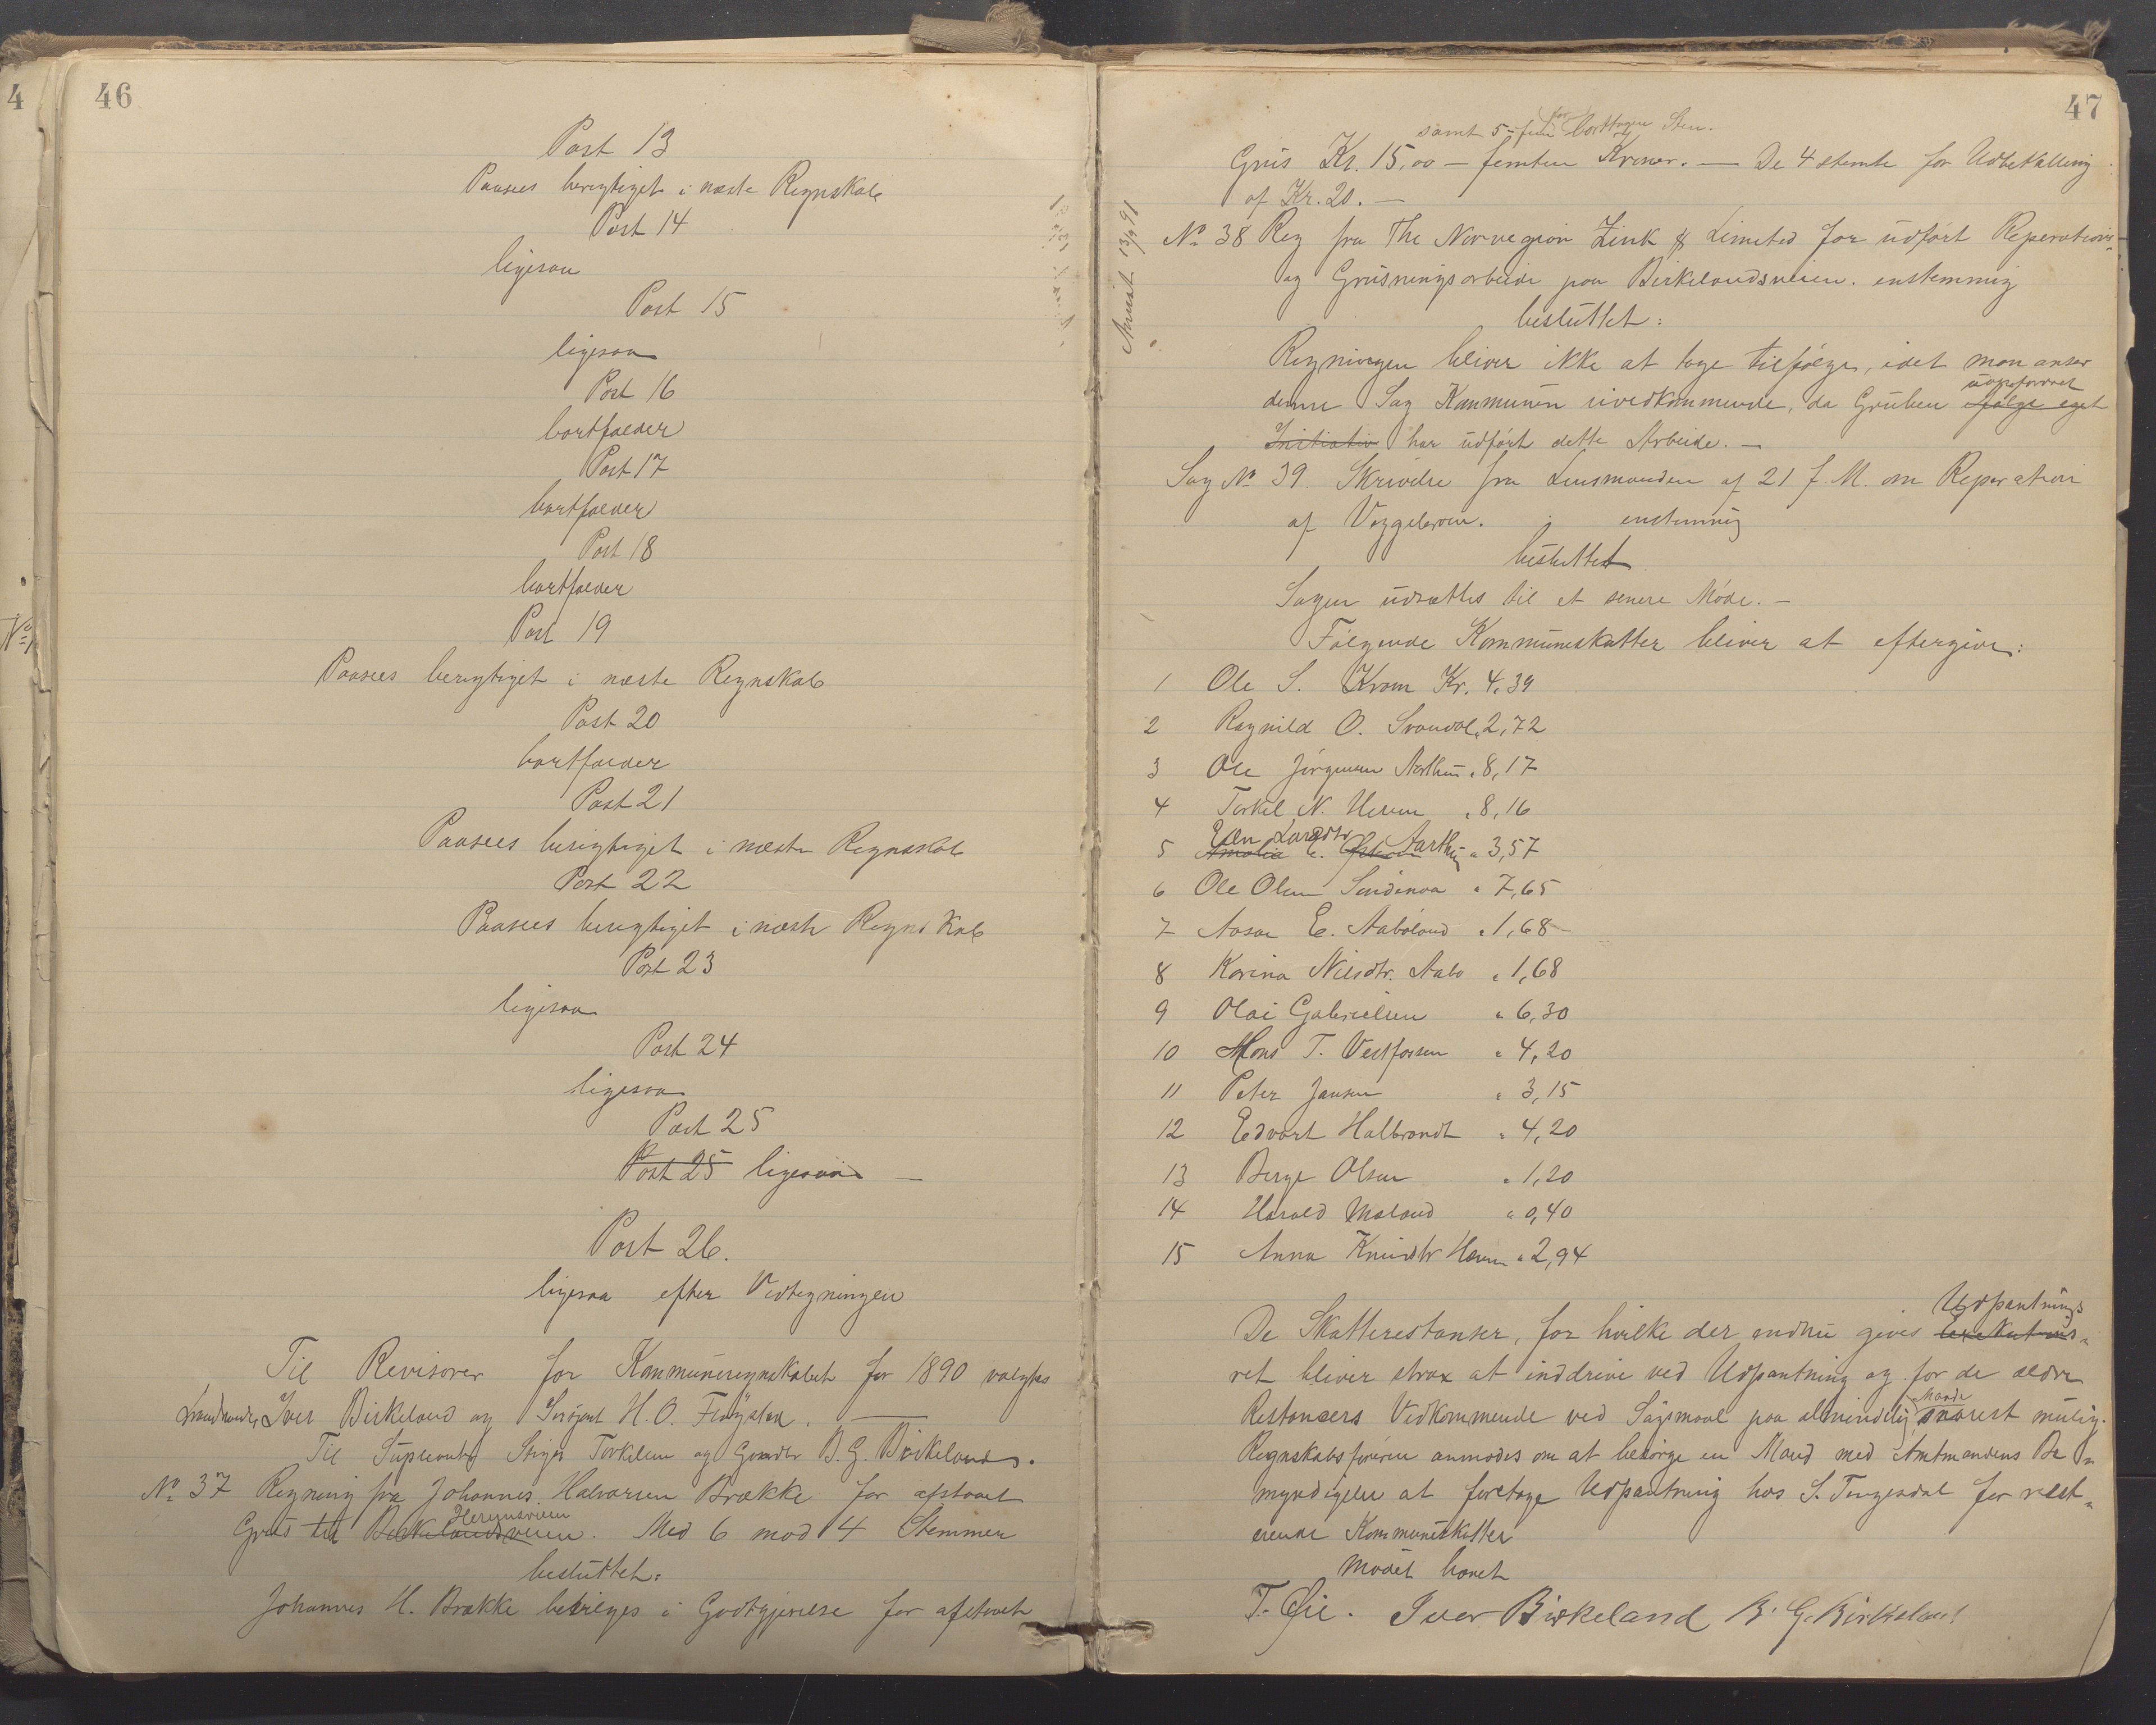 46
Post 13
Paasees berigtiget i næste Regnskab
Post 14
ligesaa
Post 15
ligesaa
Post 16
bortfalder
Post 17
bortfalder
Post 18
bortfalder
Post 19
Paasees berigtiget i næste Regnskab
Post 20
bortfalder
Post 21
Paasees berigtiget i næste Regnskab
Post 22
Paasees berigtiget i næste Regnskab
Post 23
ligesaa
Post 24
ligesaa
Post 25
Post 25 ligesaa —
Post 26.
ligesaa efter Vedtegningen
Til Revisorer for Kommuneregnskabet for 1890 valgtes
Iver Birkeland og H. O. Fløystad.
Til Torkelsen og B. G. Birkeland.
No 37 Regning fra Johannes Halvorsen Brække for afstaaet
Herynsveien
Grus til Birkelandsveien. Med 6 mod 4 Stemmer
besluttet:
Johannes H. Brække betales i Godtgjørelse for afstaaet
47
samt 5 - fem for borttagen Sten.
Grus Kr. 15,00 — femten Kroner. — De 4 stemte for Udbetaling
af Kr. 20. —
Anvist 13/9 91
No 38 Reg fra The Norwegian Zink & Limited for udført Reperations-
og Grusningsarbeide paa Birkelandsveien. enstemmig
besluttet:
Regningen bliver ikke at tage tilfølge, idet man anser
uopfordret
denne Sag Kommunen uvedkommende, da Gruben ifølge eget
Initiativ har udført dette Arbeide. —
Sag No 39. Skrivelse fra Lensmanden af 21 f. M. om Reparation
af enstemmig
besluttet
Sagen udsættes til et senere Møde. —
Følgende Kommuneskatter bliver at eftergive:
1 Ole S. Kvam Kr. 4,39
2 Ragnild O. Svandal " 2,72
3 Ole Jørgensen Aarthun " 8,17
4 Torkel N. Herum " 8,16
Elen Larsdtr
5 Amalia E. Aarthun " 3,57
6 Ole Olsen " 7,65
7 Aasae E. Aaboland " 1,68
8 Karina Nilsdtr. Aabo " 1,68
9 Olai Gabrielsen " 6,30
10 Mons T. Vestforsen " 4,20
11 Peter Jansen " 3,15
12 Edvart Halbrandt " 4,20
13 Berge Olsen " 1,20
14 Harald Maland " 0,40
15 Anna Knudsdtr " 2,94
Udpantnings
De Skatterestanser, for hvilke der endnu gives Exekutions-
ret bliver strax at inddrive ved Udpantning og for de ældre
Maade
Restancers Vedkommende ved Søgsmaal paa almindelig snarest mulig.
Regnskabsføreren anmodes om at besørge en Mand med Amtmandens Be-
myndigelse at foretage Udpantning hos S. Tengesdal for rest-
erende Kommuneskatter
Mødet hævet
T. Øie. Iver Birkeland B. G. Birkeland